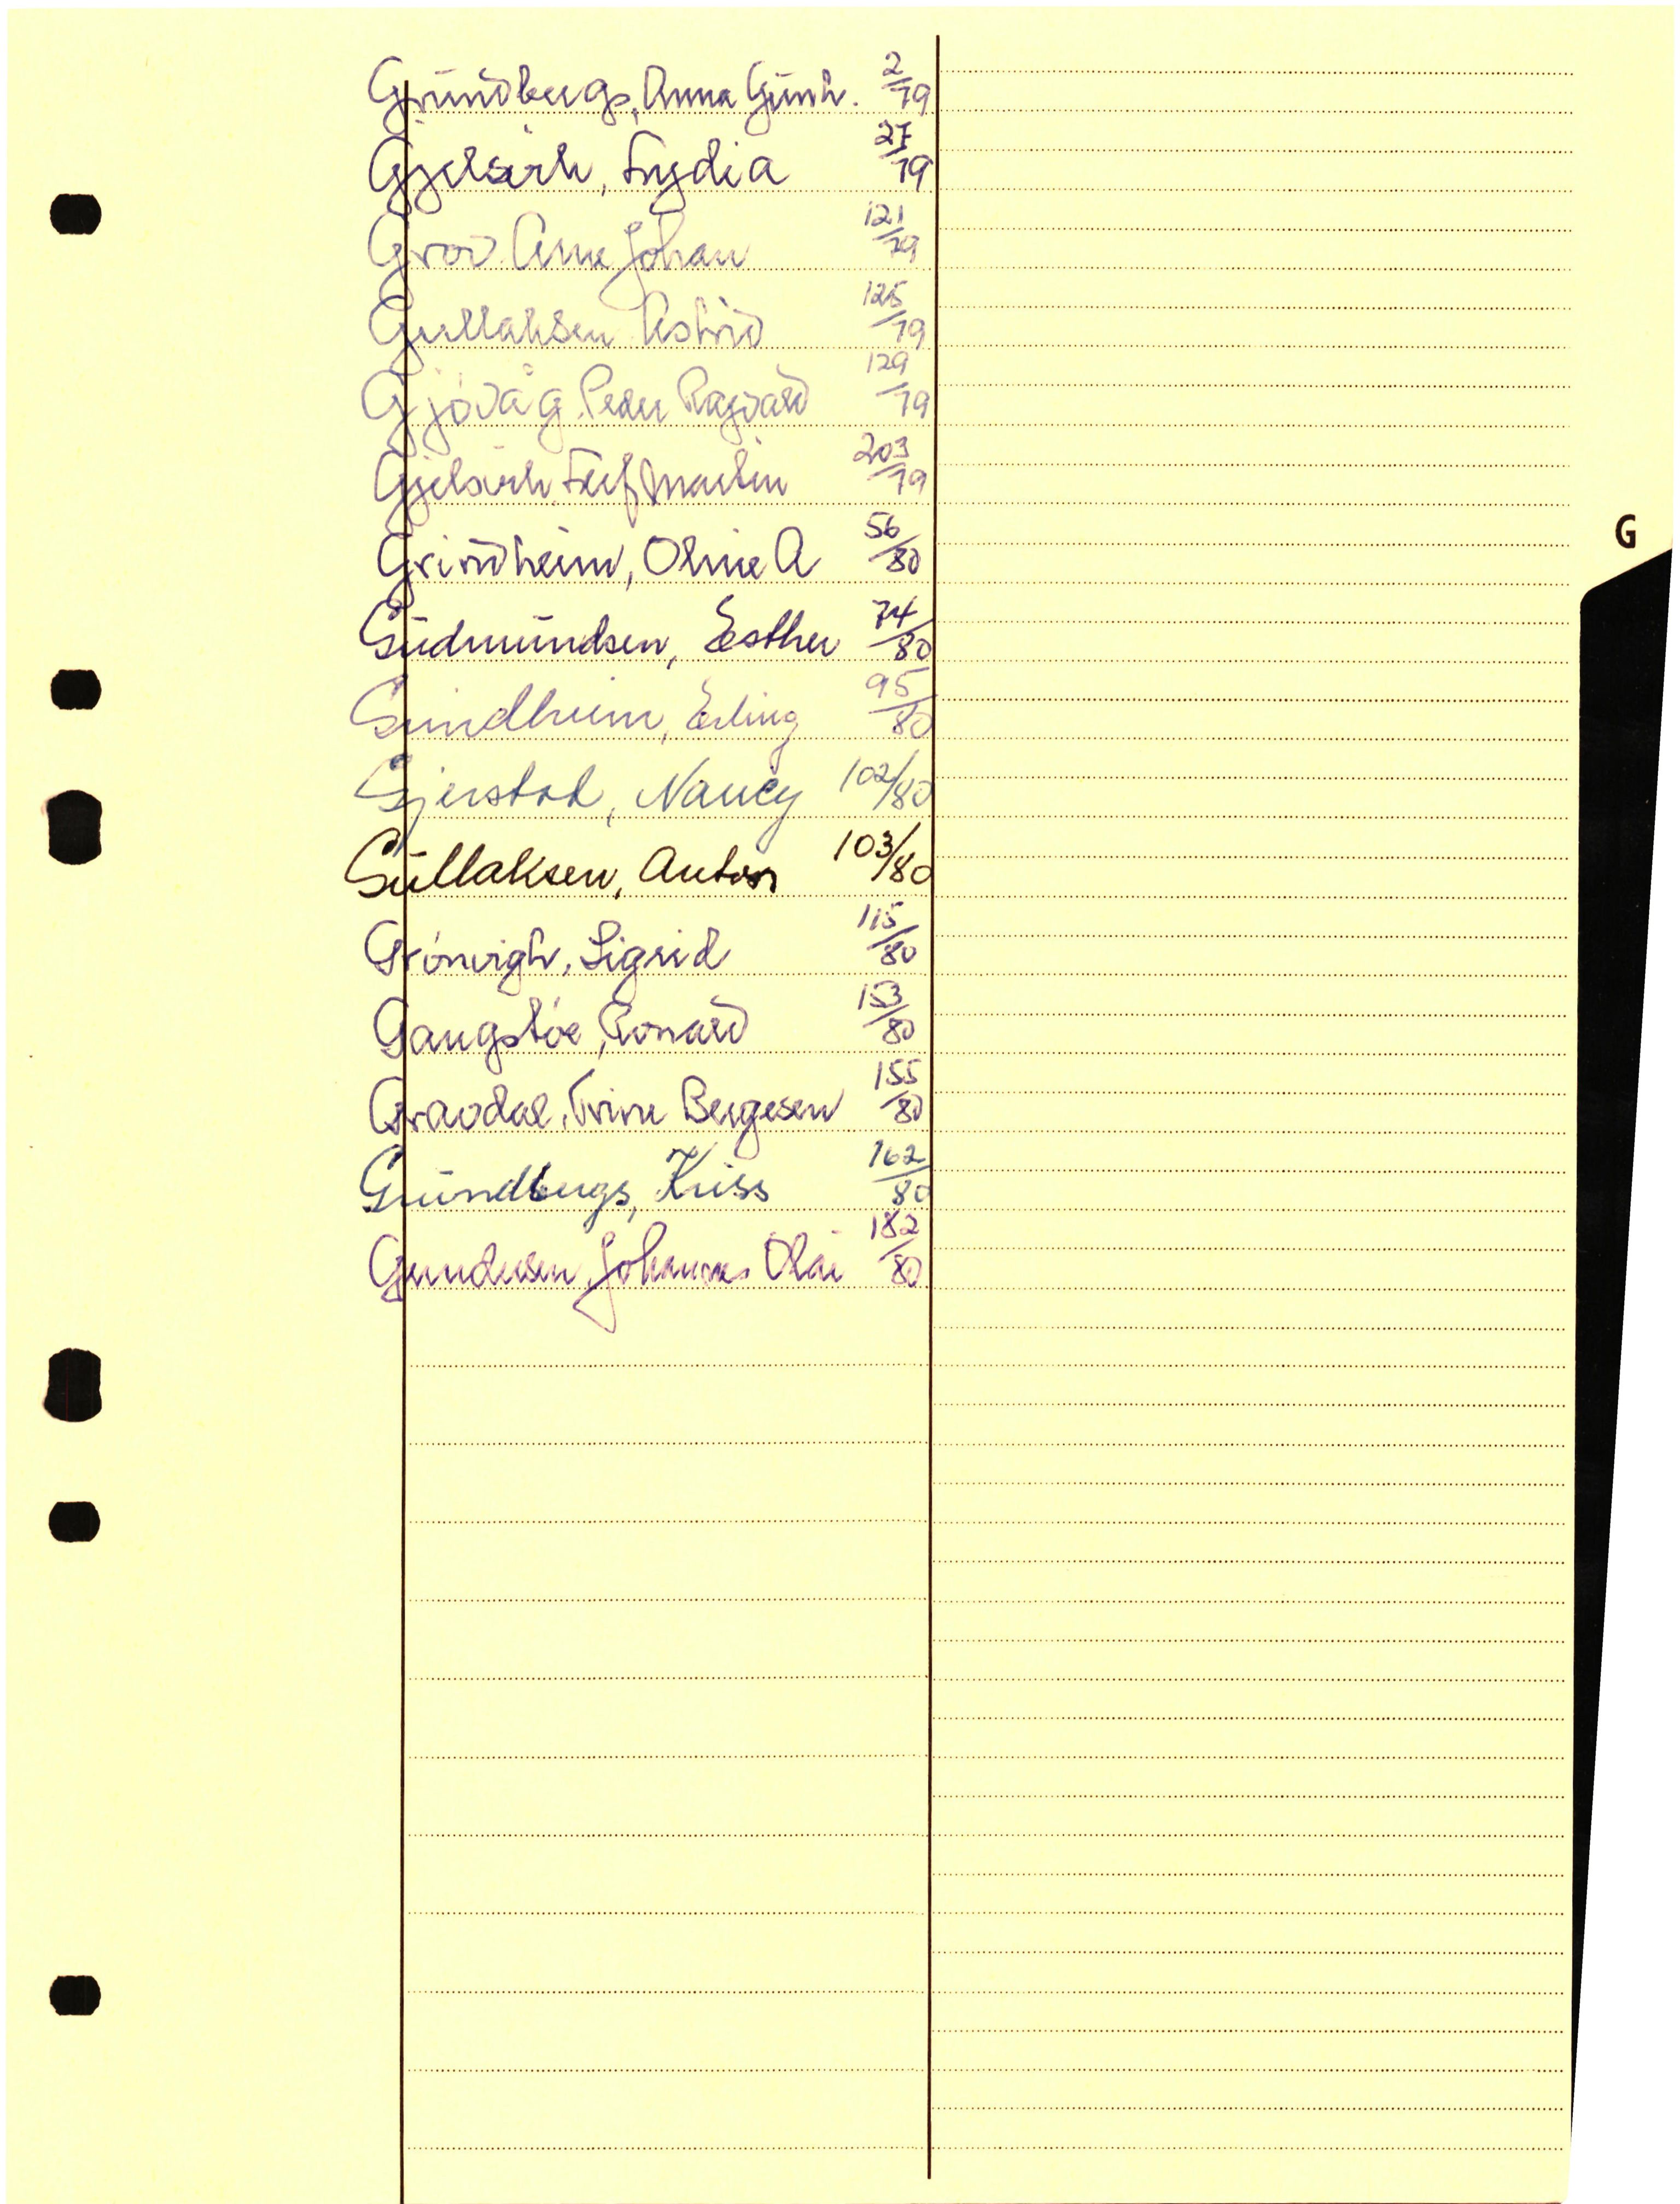 Grundbergs, Anna Gunh. 2/79
Gjelsvik, Lydia 27/79
Grov Arne Johan 121/79
Gullaksen Astrid 125/79
Gjøvåg Peder Ragvald 129/79
Gjelsvik Leif Martin 203/79
Grindheim, Oline A 56/80
G
Gudmundsen, Esther 74/80
Grindheim, Erling 95/80
Gjerstad, Nancy 102/80
Gullaksen, Anton 103/80
Grønvigh, Sigrid 115/80
Gangstøe, Ronald 153/80
Gravdal, Trine Bergesen 155/80
Grundbergs, Kriss 162/80
Gundersen, Johannes Olai 182/80